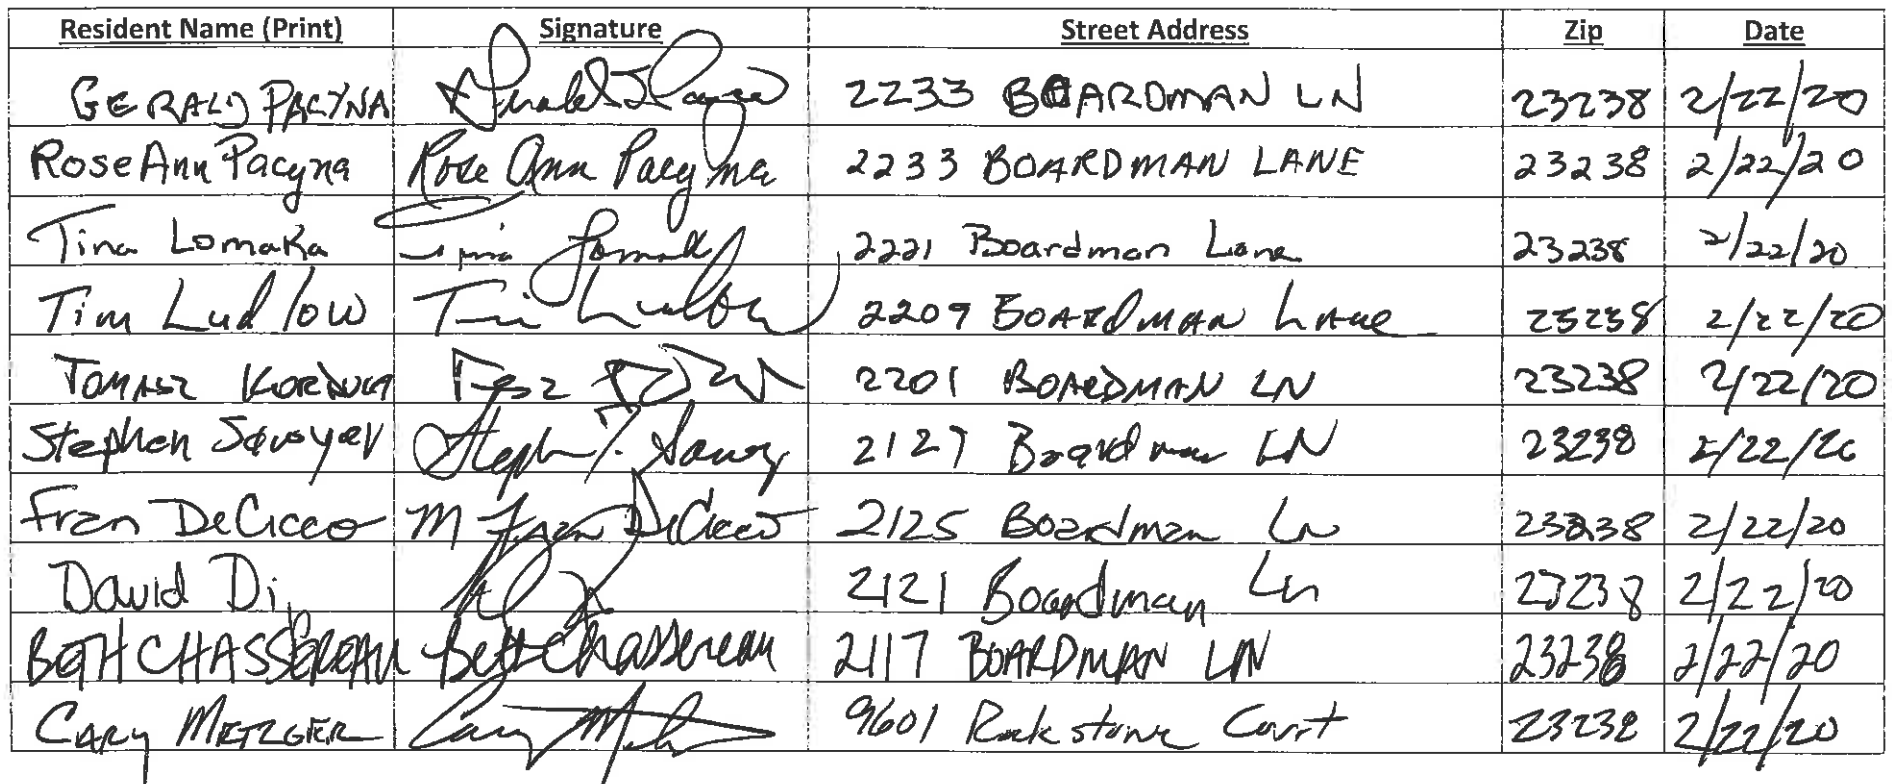 Resident Name (Print) Signature Street Address Zip Date
GERALD PACYNA Gerald J Pacyna 2233 BOARDMAN LN 23238 2/22/20
Rose Ann Pacyna Rose Ann Pacyna 2233 BOARDMAN LANE 23238 2/22/20
Tina Lomaka Tina Lomak 2221 Boardman Lane 23238 2/22/20
Tim Ludlow Tim Ludlow 2209 BOARdMAN LANE 23238 2/22/20
TOMASZ 2201 BOARDMAN LN 23238 2/22/20
Stephen Savoyer Stephen T. 2127 Boardman LN 23238 2/22/20
Fran DeCicco M Fran DeCicco 2125 Boardman Ln 23238 2/22/20
David Di 2121 Boardman Ln 23238 2/22/20
BETH CHASSEREAU Beth Chassereau 2117 BOARDMAN LN 23238 2/22/20
CARY METZGER Cary 9601 Rockstone Court 23238 2/22/20